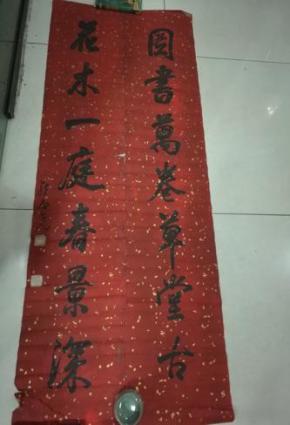 图書萬卷草堂古
花木一庭春景深